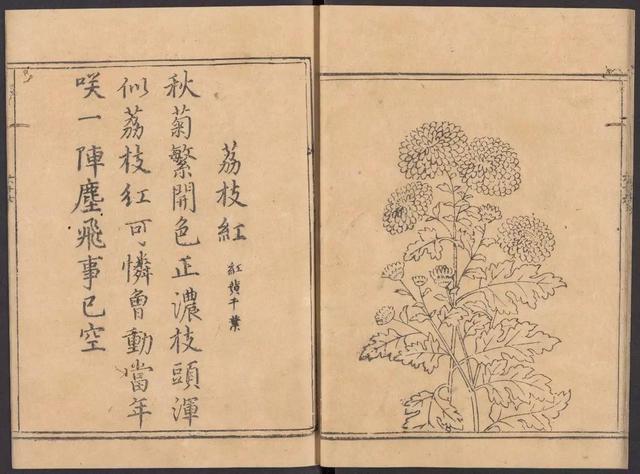 荔枝紅
紅千葉
秋菊繁開色正濃枝頭渾
似荔枝紅可憐曾動當年
咲一陣塵飛事已空